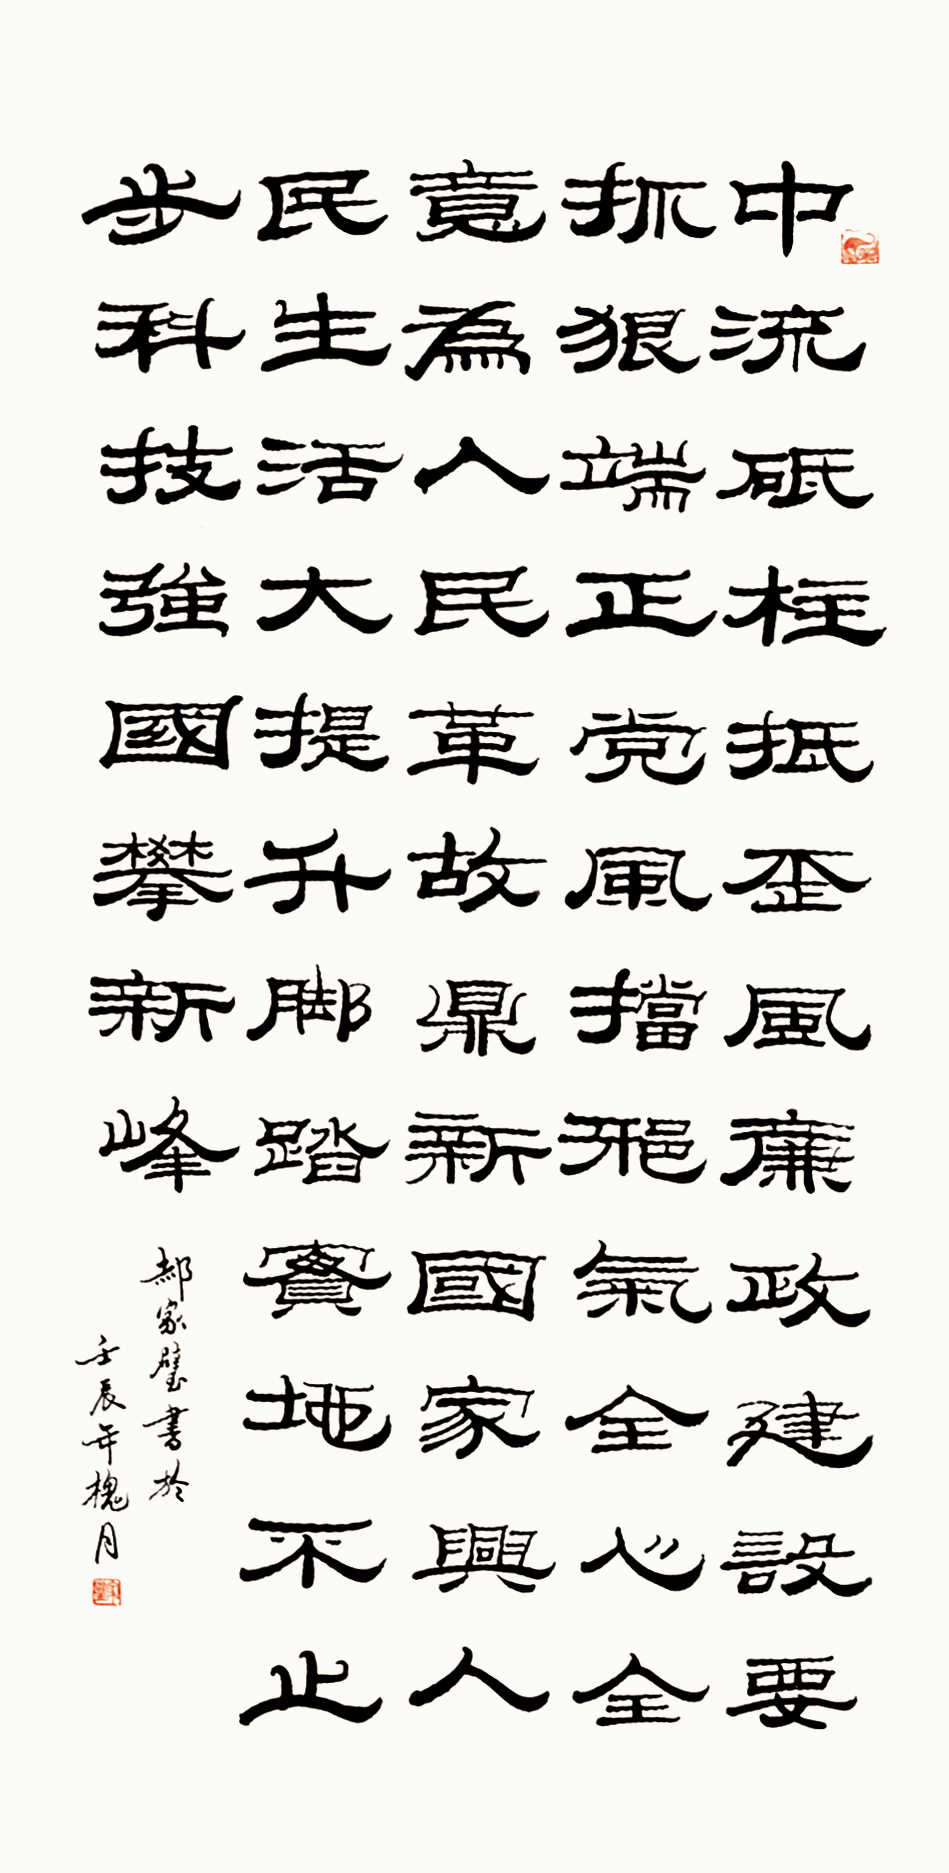 中流砥柱抵歪風廉政建設要
抓狠端正党風擋邪氣全心全
意為人民革故鼎新國家興人
民生活大提升脚踏實地不止
步科技強國攀新峰
郝家璧書於
壬辰年槐月